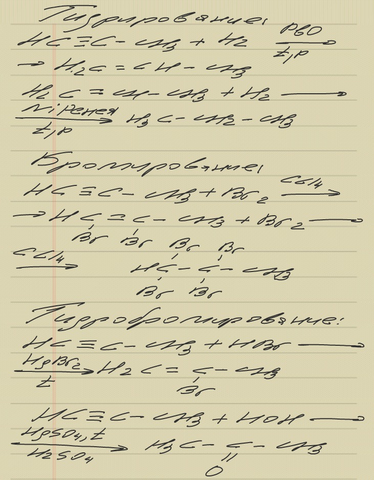 Гидрирование:
HC≡C-CH₃ + H₂ PbO
t,p
→ H₂C=CH-CH₃
H₂C=CH-CH₃ + H₂ →
Ni Ренея H₃C-CH₂-CH₃
t,p
Бромирование:
HC≡C-CH₃ + Br₂ CCl₄
→ HC=C-CH₃ + Br₂ →
Br Br Br Br
CCl₄ HC-C-CH₃
Br Br
Гидробромирование:
HC≡C-CH₃ + HBr →
HgBr₂ H₂C=C-CH₃
t Br
HC≡C-CH₃ + HOH →
HgSO₄,t H₃C-C-CH₃
H₂SO₄ ||
O